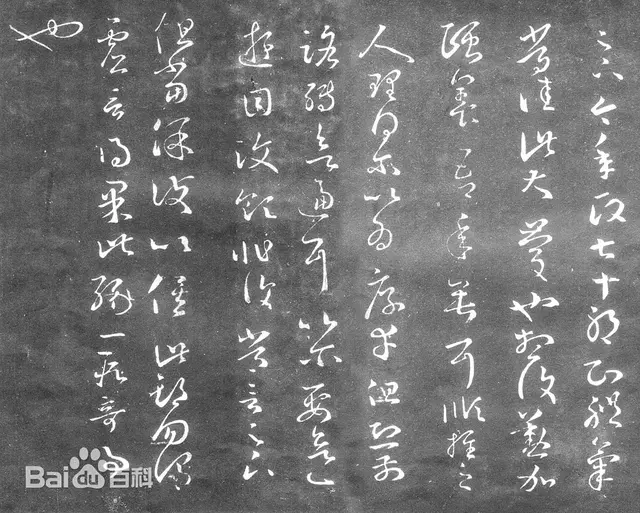 足下今年政七十耶知體氣
常佳此大慶也想復懃加
頤養吾年垂耳順推之
人理得爾以為厚幸但恐前
路轉欲逼耳以爾要欲一
遊目汶領非復常言足下
但當保護以俟此期勿謂
虛言得果此緣一段奇事
也
Bai百科